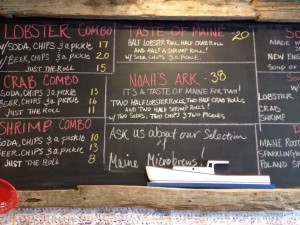 LOBSTER COMBO
W/SODA, CHIPS & a pickle 17
W/BEER, CHIPS & a pickle 20
JUST THE ROLL 15
CRAB COMBO
SODA, CHIPS & a pickle 13
BEER, CHIPS & a pickle 16
JUST THE ROLL 11
SHRIMP COMBO
SODA, CHIPS & a pickle 10
BEER, CHIPS & a pickle 13
JUST THE ROLL 8
TASTE OF MAINE 20
HALF LOBSTER ROLL, HALF CRAB ROLL
AND HALF A SHRIMP ROLL!
W/ SODA, CHIPS & a PICKLE.
NOAH'S ARK - 38
IT'S A TASTE OF MAINE FOR TWO!
TWO HALF LOBSTER ROLLS, TWO HALF CRAB ROLLS
AND TWO HALF SHRIMP ROLL!
W/ TWO SODAS, TWO CHIPS & TWO PICKLES
ASK US about our Selection
of
Maine Microbrews.
MADE
NEW EN
SOUP
LOBSTER
CRAB
SHRIMP
MAINE ROOT
SPARKLING
POLAND SP